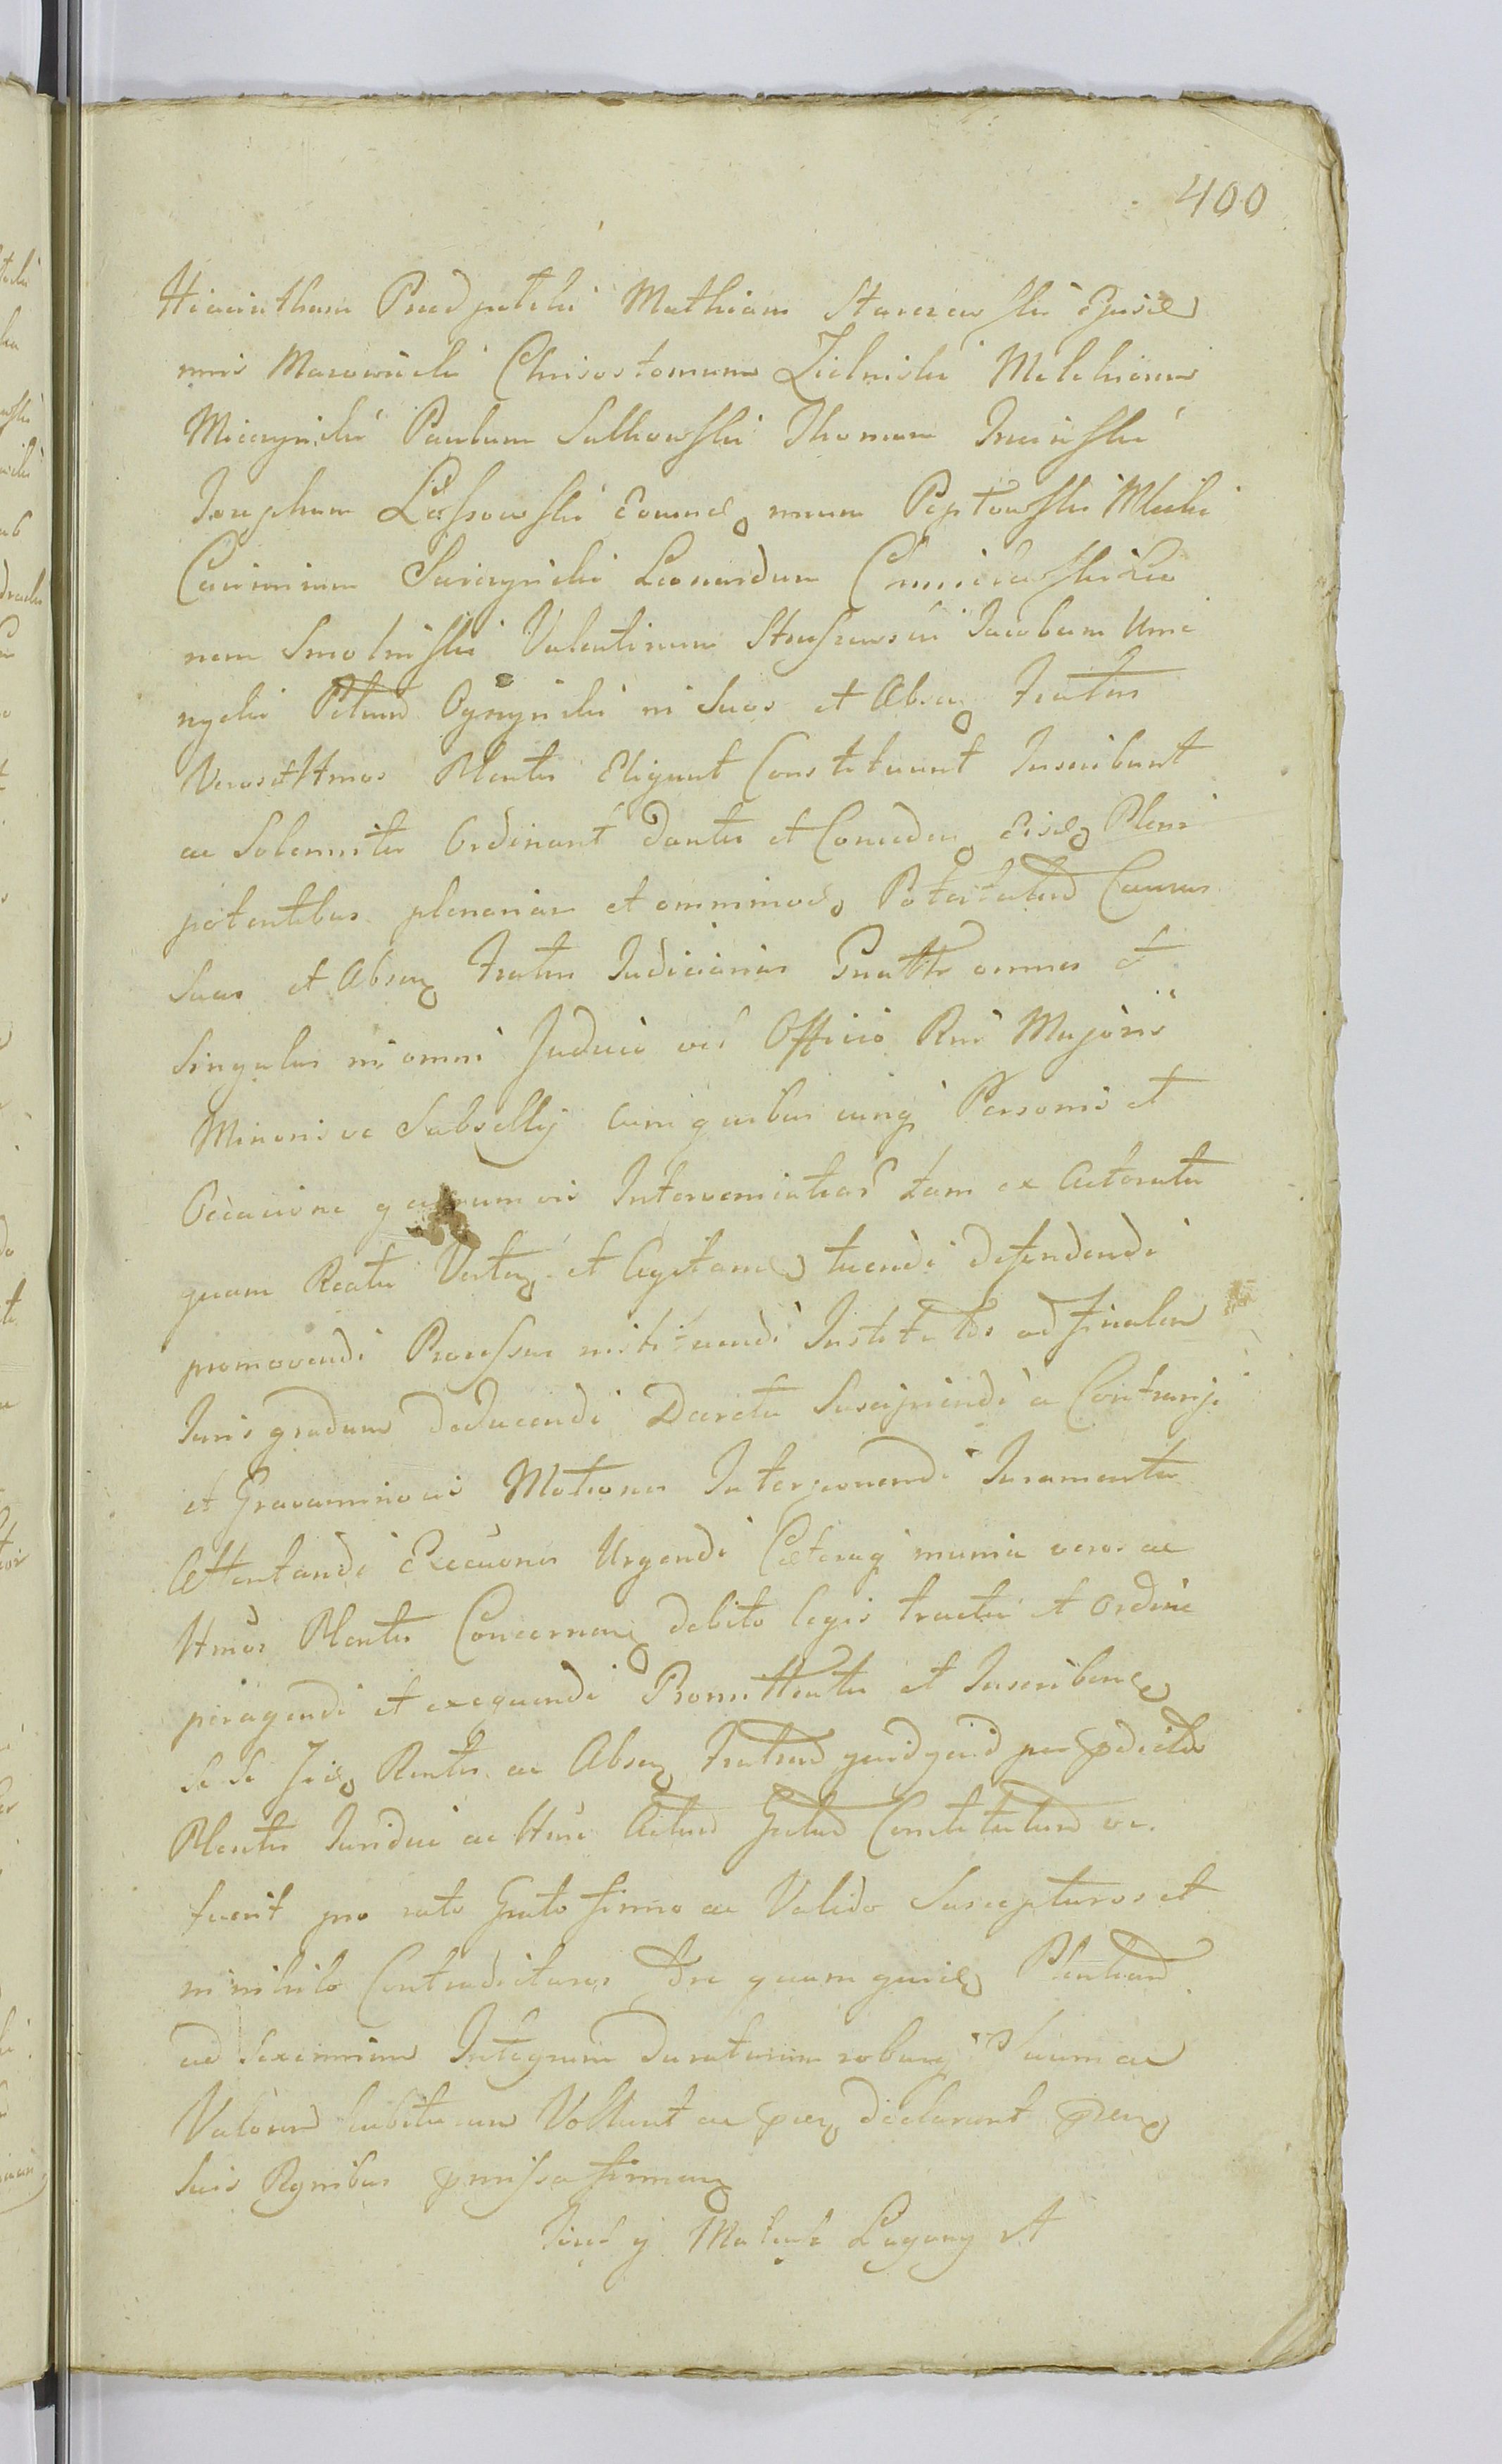 400
Hiacinthum Przedpelski Mathiam Starczewski Ejusd
mis Mazowiecki Chrisostomum Zielniski Melchiorem
Miczynski Paulum Sulkowski Thomam
Josephum Lassowski eorund mum Peptowski
Casimirum Leonardum Leo
nem Smolinski Valentinum Straszewski Jacobum
Oyrzynski in Suos et Absen Fratrum
Veros et Ltmos Plentes Eligunt Constituunt Inscribunt
ac Solemniter Ordinant dantes et Conceden eisd Pleni
potentibus plenariam et omnimod Potestatem Causas
Suas et Absen Fratrum Judiciarias Gnatter omnes et
Singulas in omni Judicio vel Officio Rni Majoris
Minorisve Subsellij cum quibus cunq Personis et
Occasione quarumvis Interveniential tam ex Actoratu
quam Reatu Verten et Agitand tuendi defendendi
promovendi Processus instituendi Institutos ad finalem
Juris gradum deducendi Decreta Suscipiendi a Contrarijs
et Gravaminosis Motiones Interponendi Juramenta
Attentandi Execuones Urgendi Caeteraq munia veros ac
Ltmos Plentes Concernen debito legis tractu et Ordine
peragendi et exequendi Promittentes et Inscriben
se se Jisd Rentes ac Absen Fratrum quidquid per pdictos
Plentes Juridice ac Ltme Actum Gestum Constitutum ve
fuerit pro rato Grato firmo ac Valido Suscepturos et
in nihilo Contradicturos quam quid
ad Sexennium Integrum duraturam roburq Suum ac
Valorem habituram Vollunt ac declarant
Suis Rgnibus pmissa firman